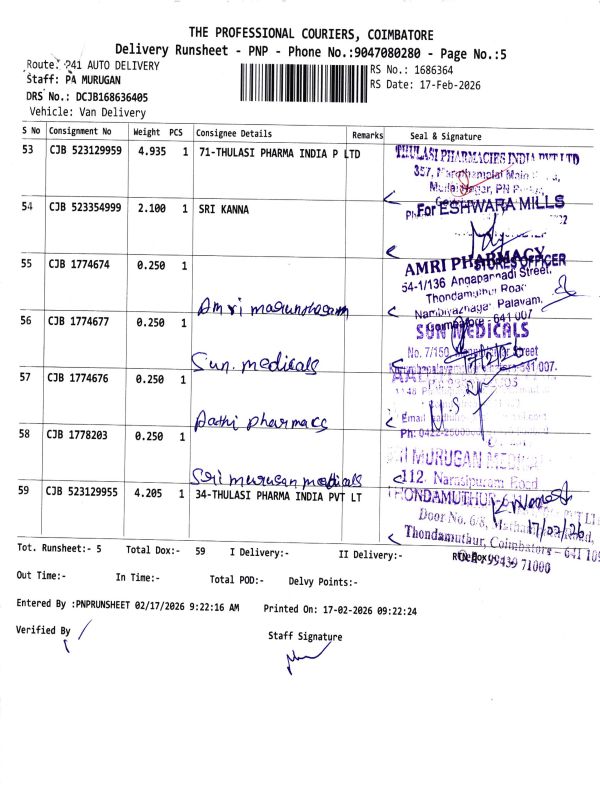 THE PROFESSIONAL COURIERS, COIMBATORE
Delivery Runsheet - PNP - Phone No.:9047080280 - Page No.:5
Route: P41 AUTO DELIVERY
RS No.: 1686364
Staff: PA MURUGAN
RS Date: 17-Feb-2026
DRS No.: DCJB168636405
Vehicle: Van Delivery
S No Consignment No Weight PCS Consignee Details Remarks Seal & Signature
53 CJB 523129959 4.935 1 71-THULASI PHARMA INDIA P LTD
THULASI PHARMACIES INDIA PVT LTD
357, Main
54 CJB 523354999 2.100 1 SRI KANNA
For ESHWARA MILLS
STORES OFFICER
55 CJB 1774674 0.250 1
AMRI PHARMACY
54-1/136 Angapannadi Street,
Palavam,
641 007
56 CJB 1774677 0.250 1
SUN MEDICALS
No. 7/150 Street
17/2/26
Sun. medicals
57 CJB 1774676 0.250 1
Email
Aathi pharmacs
Ph: 0422
58 CJB 1778203 0.250 1
MURUGAN
112, Narasipuram Road
Sri murugan medicals
59 CJB 523129955 4.205 1 34-THULASI PHARMA INDIA PVT LT
THONDAMUTHUR
Door No. 6/8,
17/02/26
Thondamuthur, Coimbatore - 641 109
99439 71000
Tot. Runsheet:- 5 Total Dox:- 59 I Delivery:- II Delivery:-
Out Time:- In Time:- Total POD:- Delvy Points:-
Entered By :PNPRUNSHEET 02/17/2026 9:22:16 AM Printed On: 17-02-2026 09:22:24
Verified By
Staff Signature